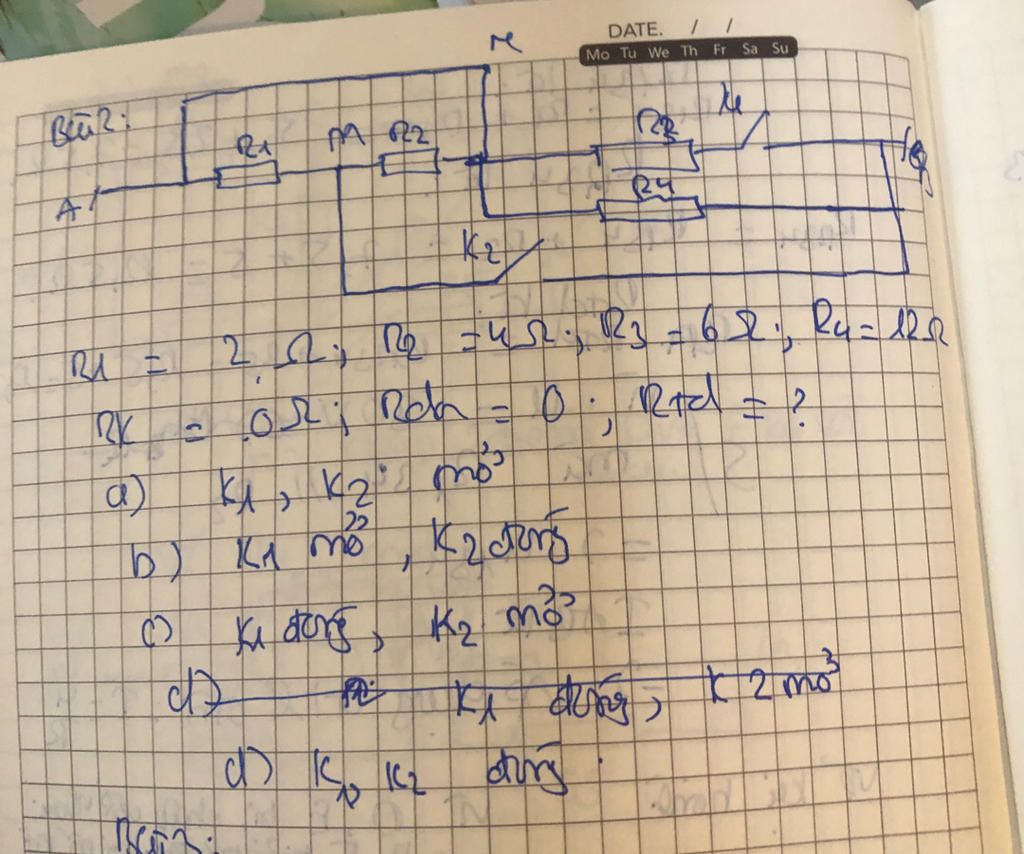 DATE. / /
Mo Tu We Th Fr Sa Su
N
Bài 2:
R1 M R2 R3 K1
A B
R4
K2
R1 = 2 Ω; R2 = 4 Ω; R3 = 6 Ω; R4 = 12 Ω
RK = 0 Ω; Rdn = 0; Rtd = ?
a) K1, K2 mở
b) K1 mở, K2 đóng
c) K1 đóng, K2 mở
d) K1 đóng, K2 mở
d) K1, K2 đóng.
Bài 3: